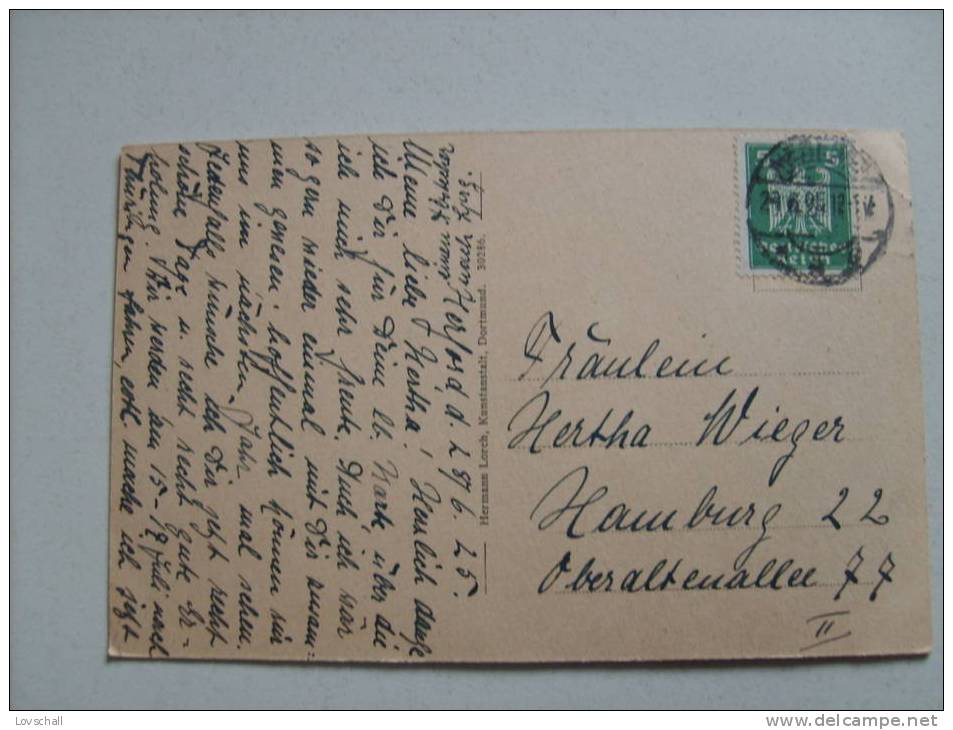 Herford d. 28/6. 25.
Meine liebe Hertha! Herzlich danke
ich Dir für Deine lb. Karte über die
ich mich sehr freute. Auch ich wär
so gern wieder einmal mit Dir zusam=
men gewesen! hoffentlich können wir
uns im nächsten Jahr mal sehen.
Jedenfalls wünsche ich Dir jetzt recht
schöne Tage u. recht recht gute Er-
holung. Wir werden am 15-19 Juli nach
Thüringen fahren, erst mache ich jetzt
Hermann Lorch, Kunstanstalt, Dortmund. 30286.
5 5
Deutsches
Reich
Fräulein
Hertha Wieger
Hamburg 22
Oberaltenallee 77
II
Lovschall
www.delcampe.net